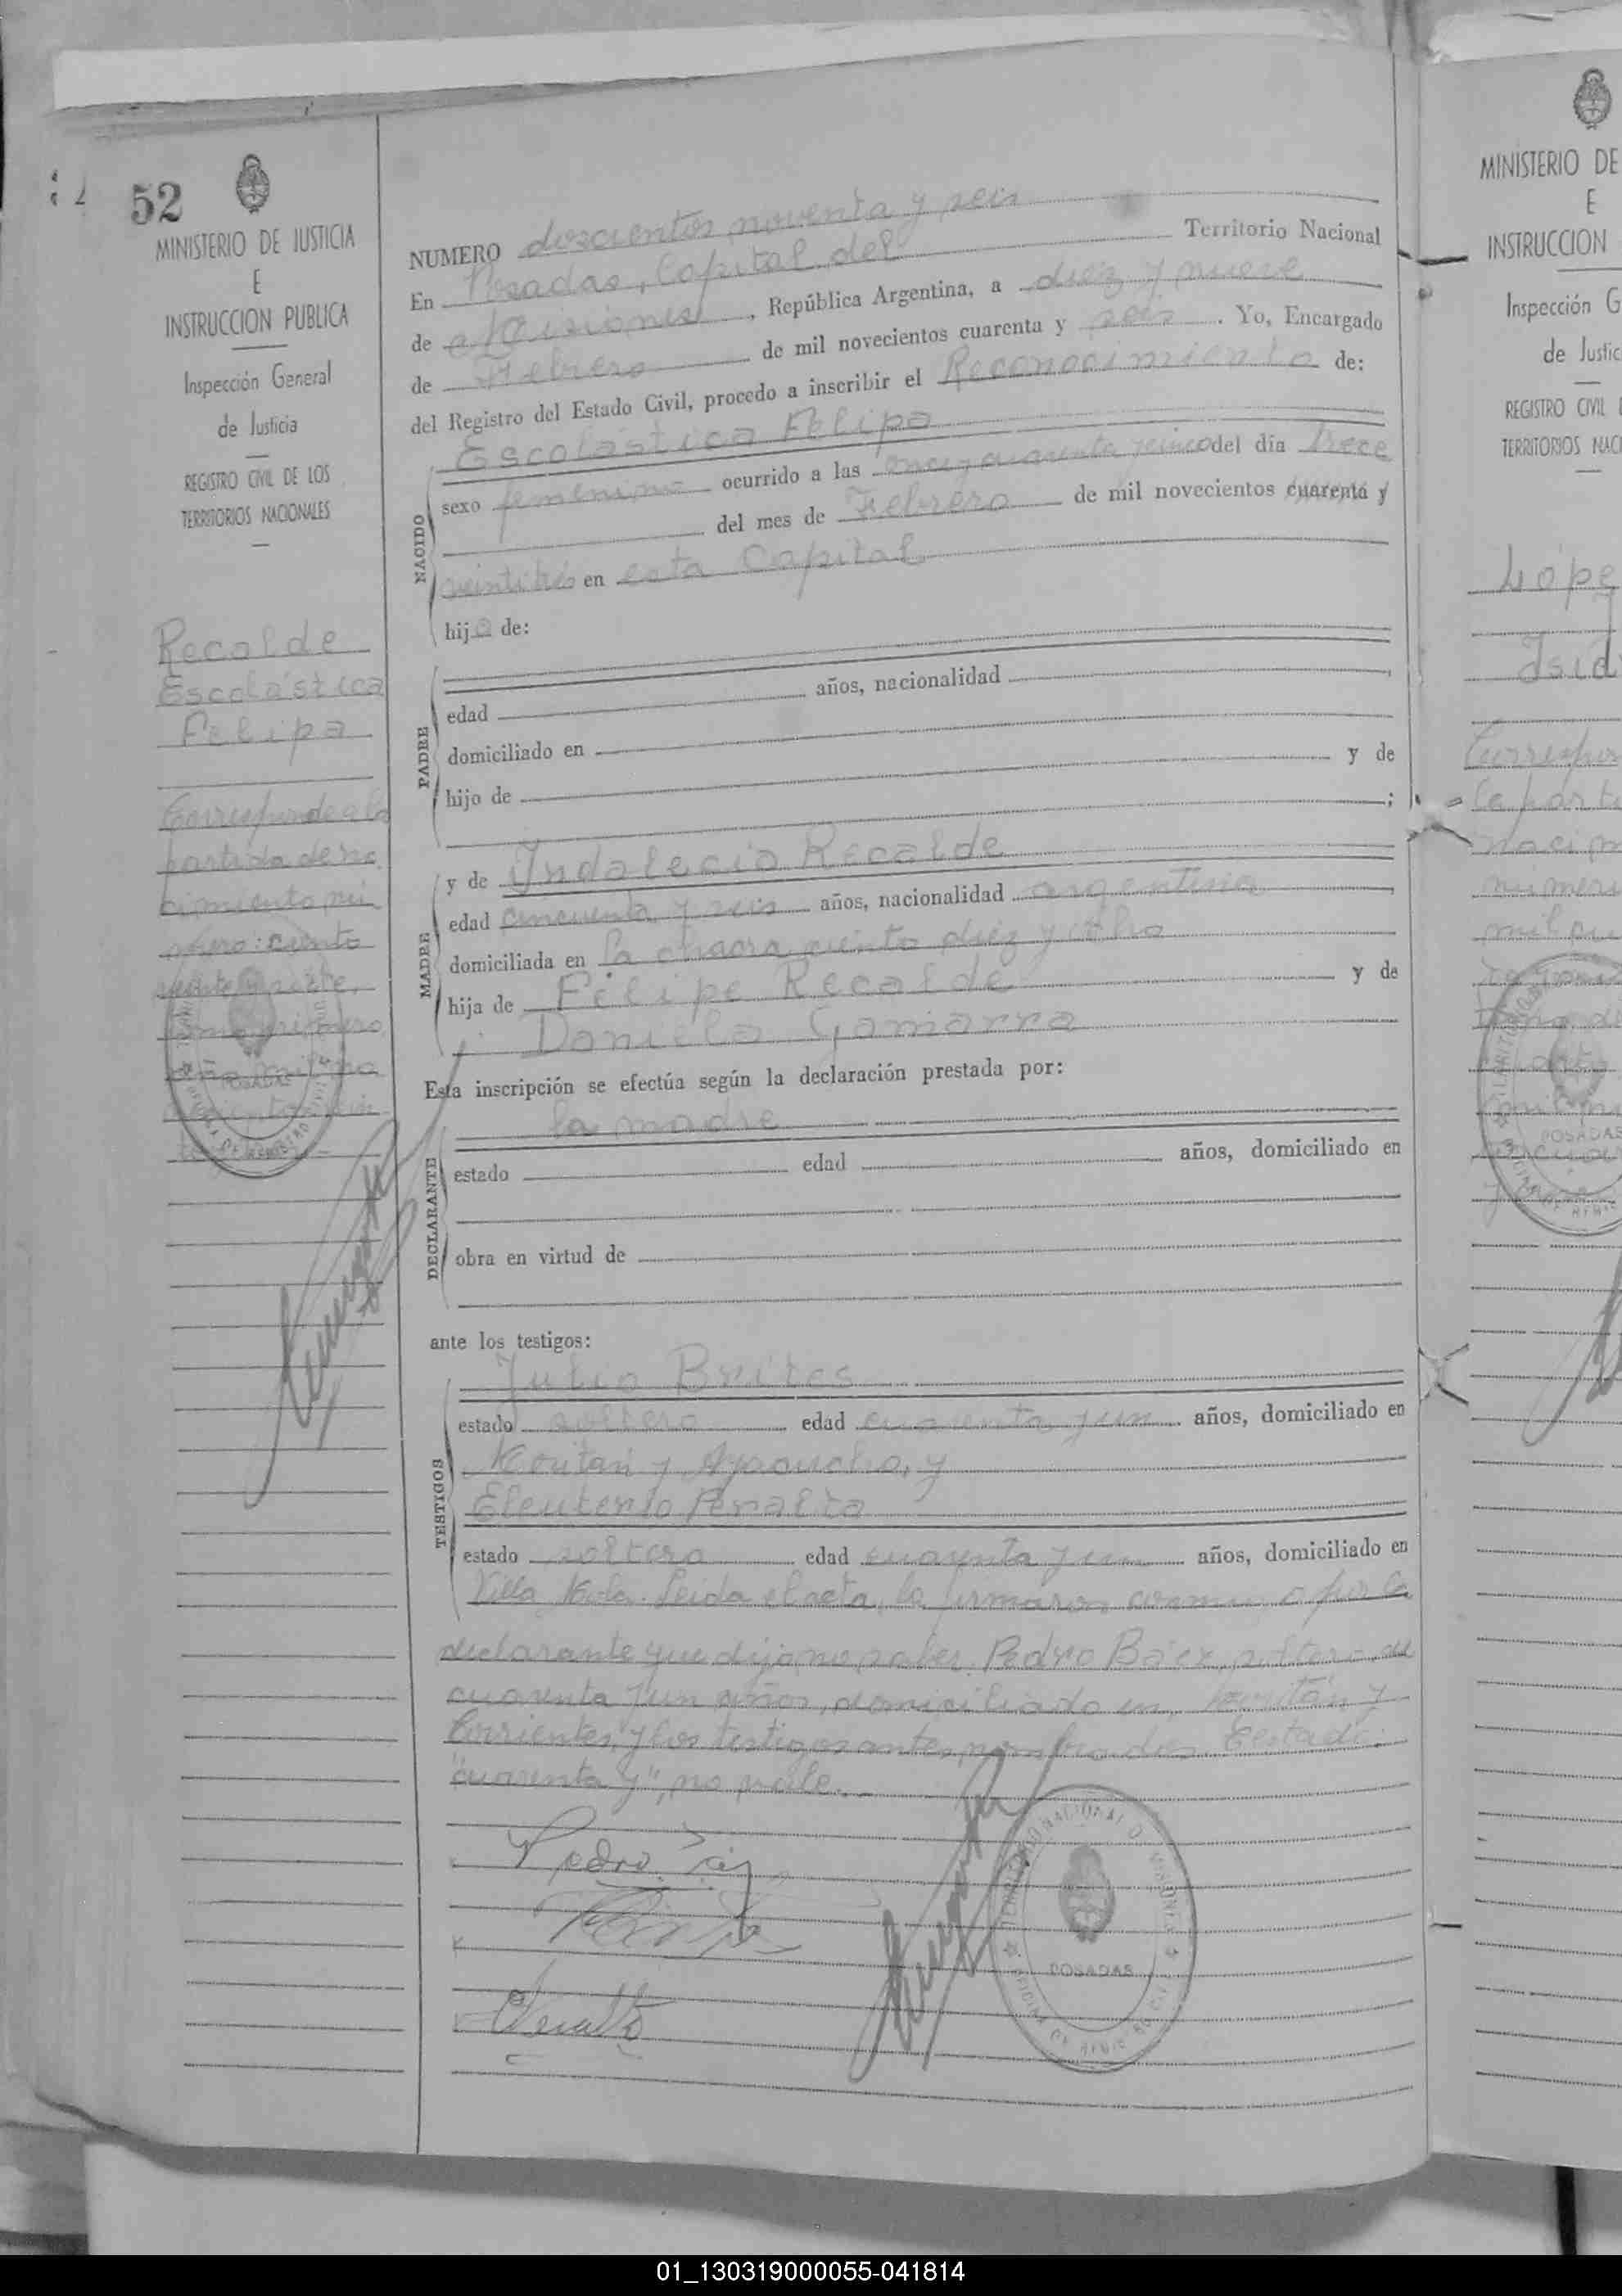 52
MINISTERIO DE JUSTICIA
E
INSTRUCCION PUBLICA
Inspección General
de Justicia
REGISTRO CIVIL DE LOS
TERRITORIOS NACIONALES
Recalde
Escolástica
Felipa
Corresponde a la
partida de na
cimiento nú
mero: ciento
veinte y siete,
tomo primero,
año mil no
NUMERO doscientos noventa y seis
En Posadas, Capital del Territorio Nacional
de Misiones, República Argentina, a diez y nueve
de Febrero de mil novecientos cuarenta y seis. Yo, Encargado
del Registro del Estado Civil, procedo a inscribir el Reconocimiento de:
Escolástica Felipa
NACIDO
sexo femenino ocurrido a las once y cuarenta y cinco del día trece
del mes de Febrero de mil novecientos cuarenta y
veintitrés en esta Capital
hija de:
PADRE
edad años, nacionalidad
domiciliado en
hijo de y de
;
MADRE
y de Indalecia Recalde
edad cincuenta y seis años, nacionalidad argentina
domiciliada en la chacra ciento diez y ocho
hija de Felipe Recalde y de
Daniela Gamarra
Esta inscripción se efectúa según la declaración prestada por:
la madre
DECLARANTE
estado edad años, domiciliado en
obra en virtud de
ante los testigos:
TESTIGOS
Julio Brites
estado soltero edad cuarenta y un años, domiciliado en
y Ayacucho, y
Eleuterio Peralta
estado soltero edad cuarenta y un años, domiciliado en
Villa Leida el acta, la firmaron conmigo por la
declarante que dijo no saber Pedro Báez, soltero, de
cuarenta y un años, domiciliado en y
Corrientes, y los testigos antes nombrados. Testado:
"cuarenta y", no vale.
Pedro
Peralta
TERRITORIO NACIONAL DE MISIONES
POSADAS
MINISTERIO DE
E
INSTRUCCION
Inspección G
de Justic
REGISTRO CIVIL
TERRITORIOS NACI
Lópe
Isid
POSADAS
01_130319000055-041814